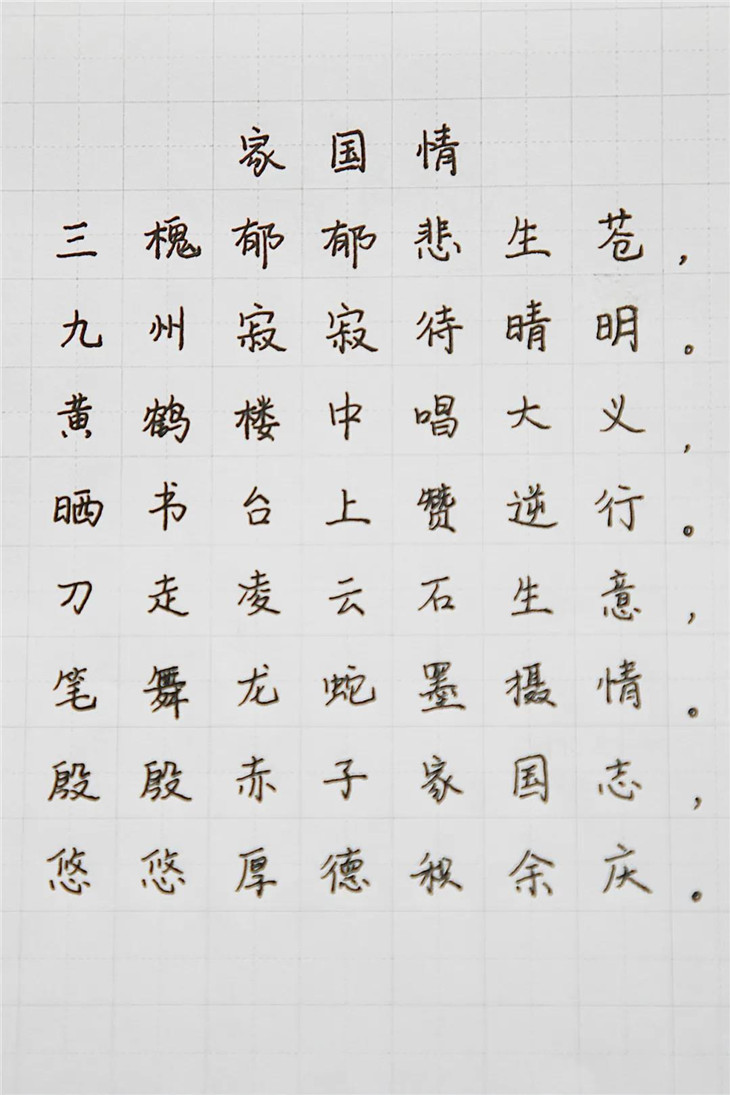 家国情
三槐郁郁悲生苍，
九州寂寂待晴明。
黄鹤楼中唱大义，
晒书台上赞逆行。
刀走凌云石生意，
笔舞龙蛇墨摄情。
殷殷赤子家国志，
悠悠厚德积余庆。